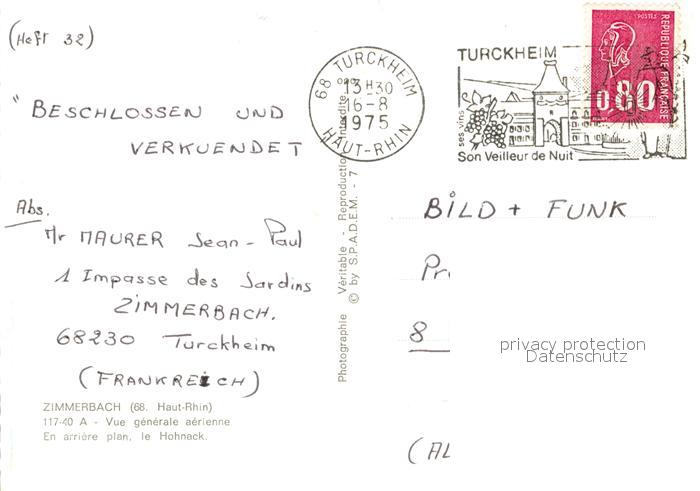 (Heft 32)
"BESCHLOSSEN UND
VERKUENDET
Abs.
Mr MAURER Jean-Paul
1 Impasse des Jardins
ZIMMERBACH.
68230 Turckheim
(FRANKREICH)
ZIMMERBACH (68. Haut-Rhin)
117-40 A - Vue générale aérienne
En arrière plan, le Hohnack.
Photographie Véritable - Reproduction interdite
© by S.P.A.D.E.M. - 7
68 TURCKHEIM
13H30
16-8
1975
HAUT-RHIN
TURCKHEIM
ses vins
Son Veilleur de Nuit
POSTES
REPUBLIQUE FRANÇAISE
0,80
BILD + FUNK
8
(AL
privacy protection
Datenschutz